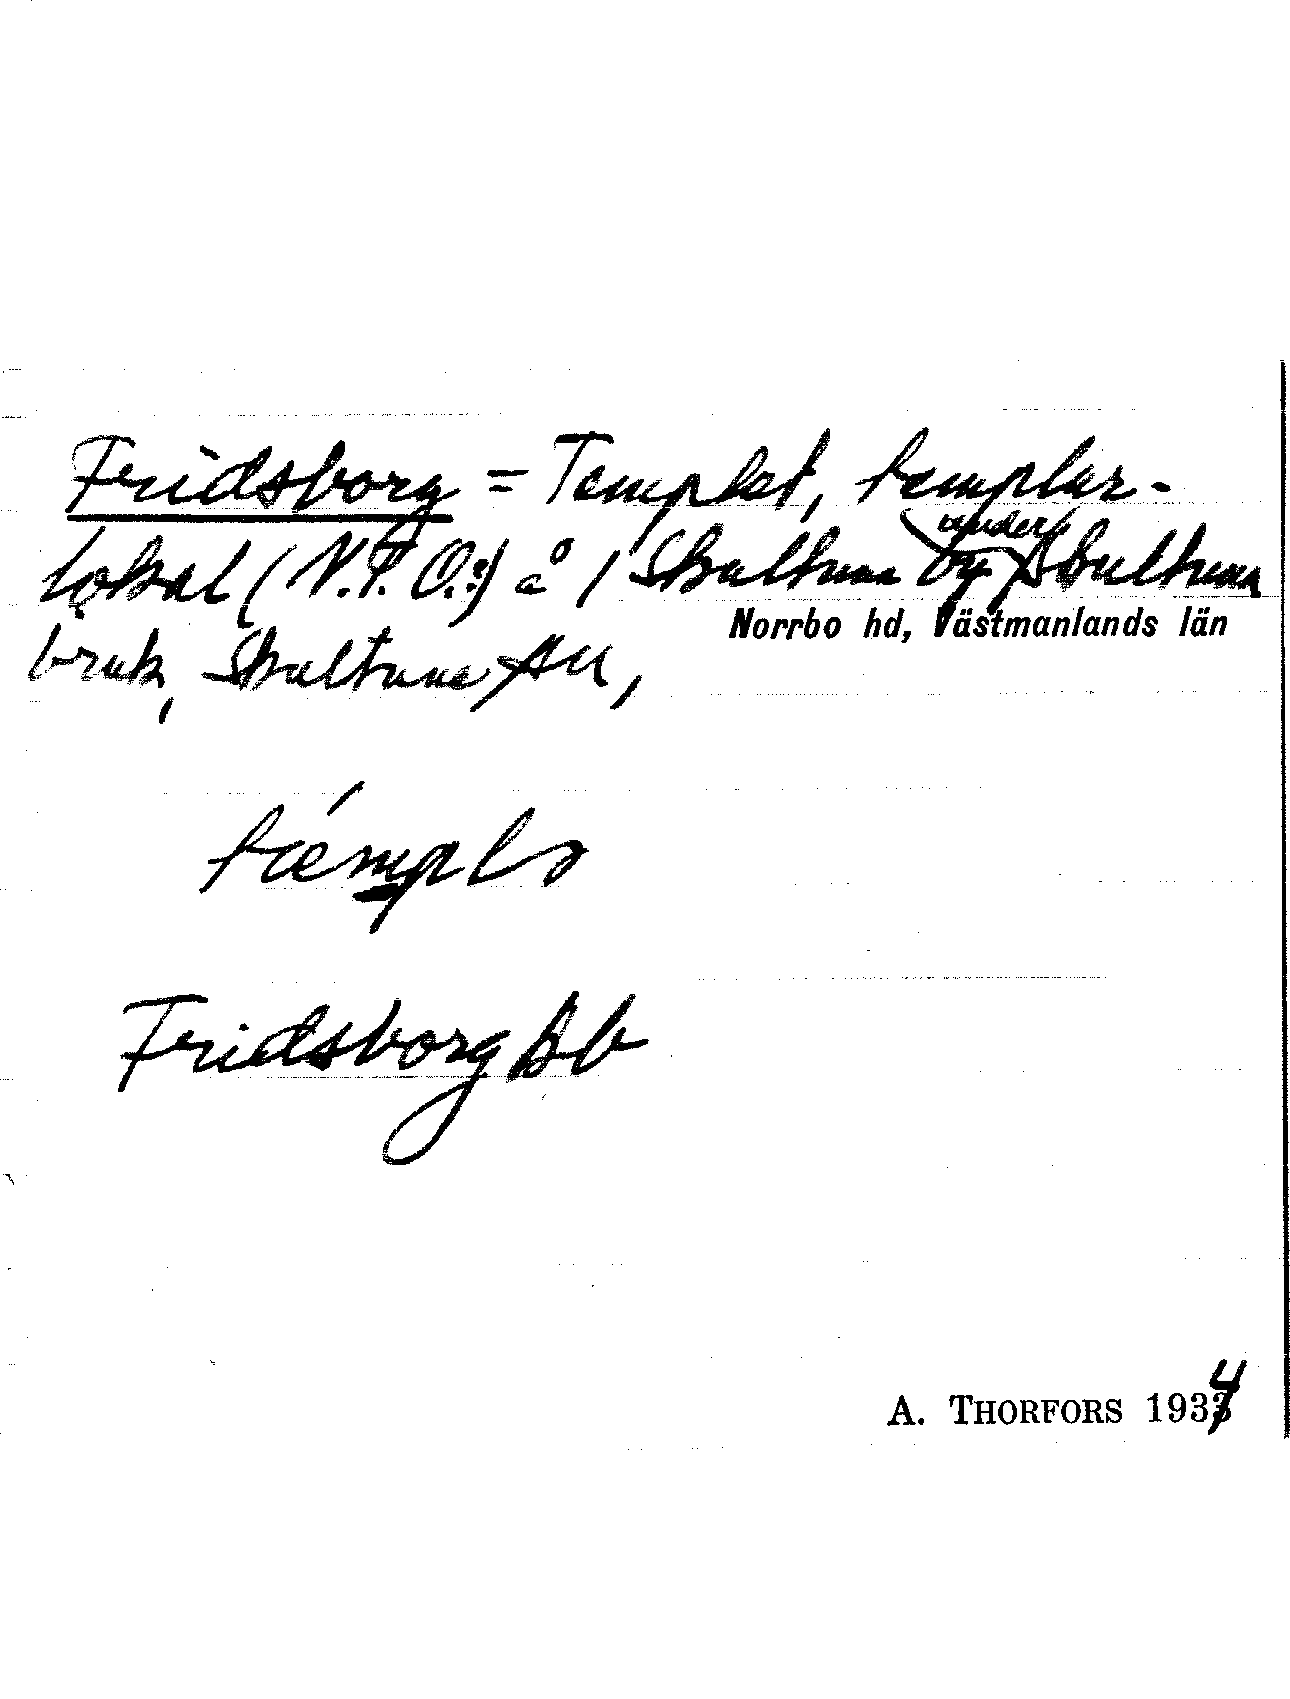 Fridsborg = Templet, templar-
under
lokal (N.T.O.:s) å 1 Skultuna by, Skultuna
Norrbo hd, Västmanlands län
bruk, Skultuna sn,
témplə
Fridsborg
A. THORFORS 1934